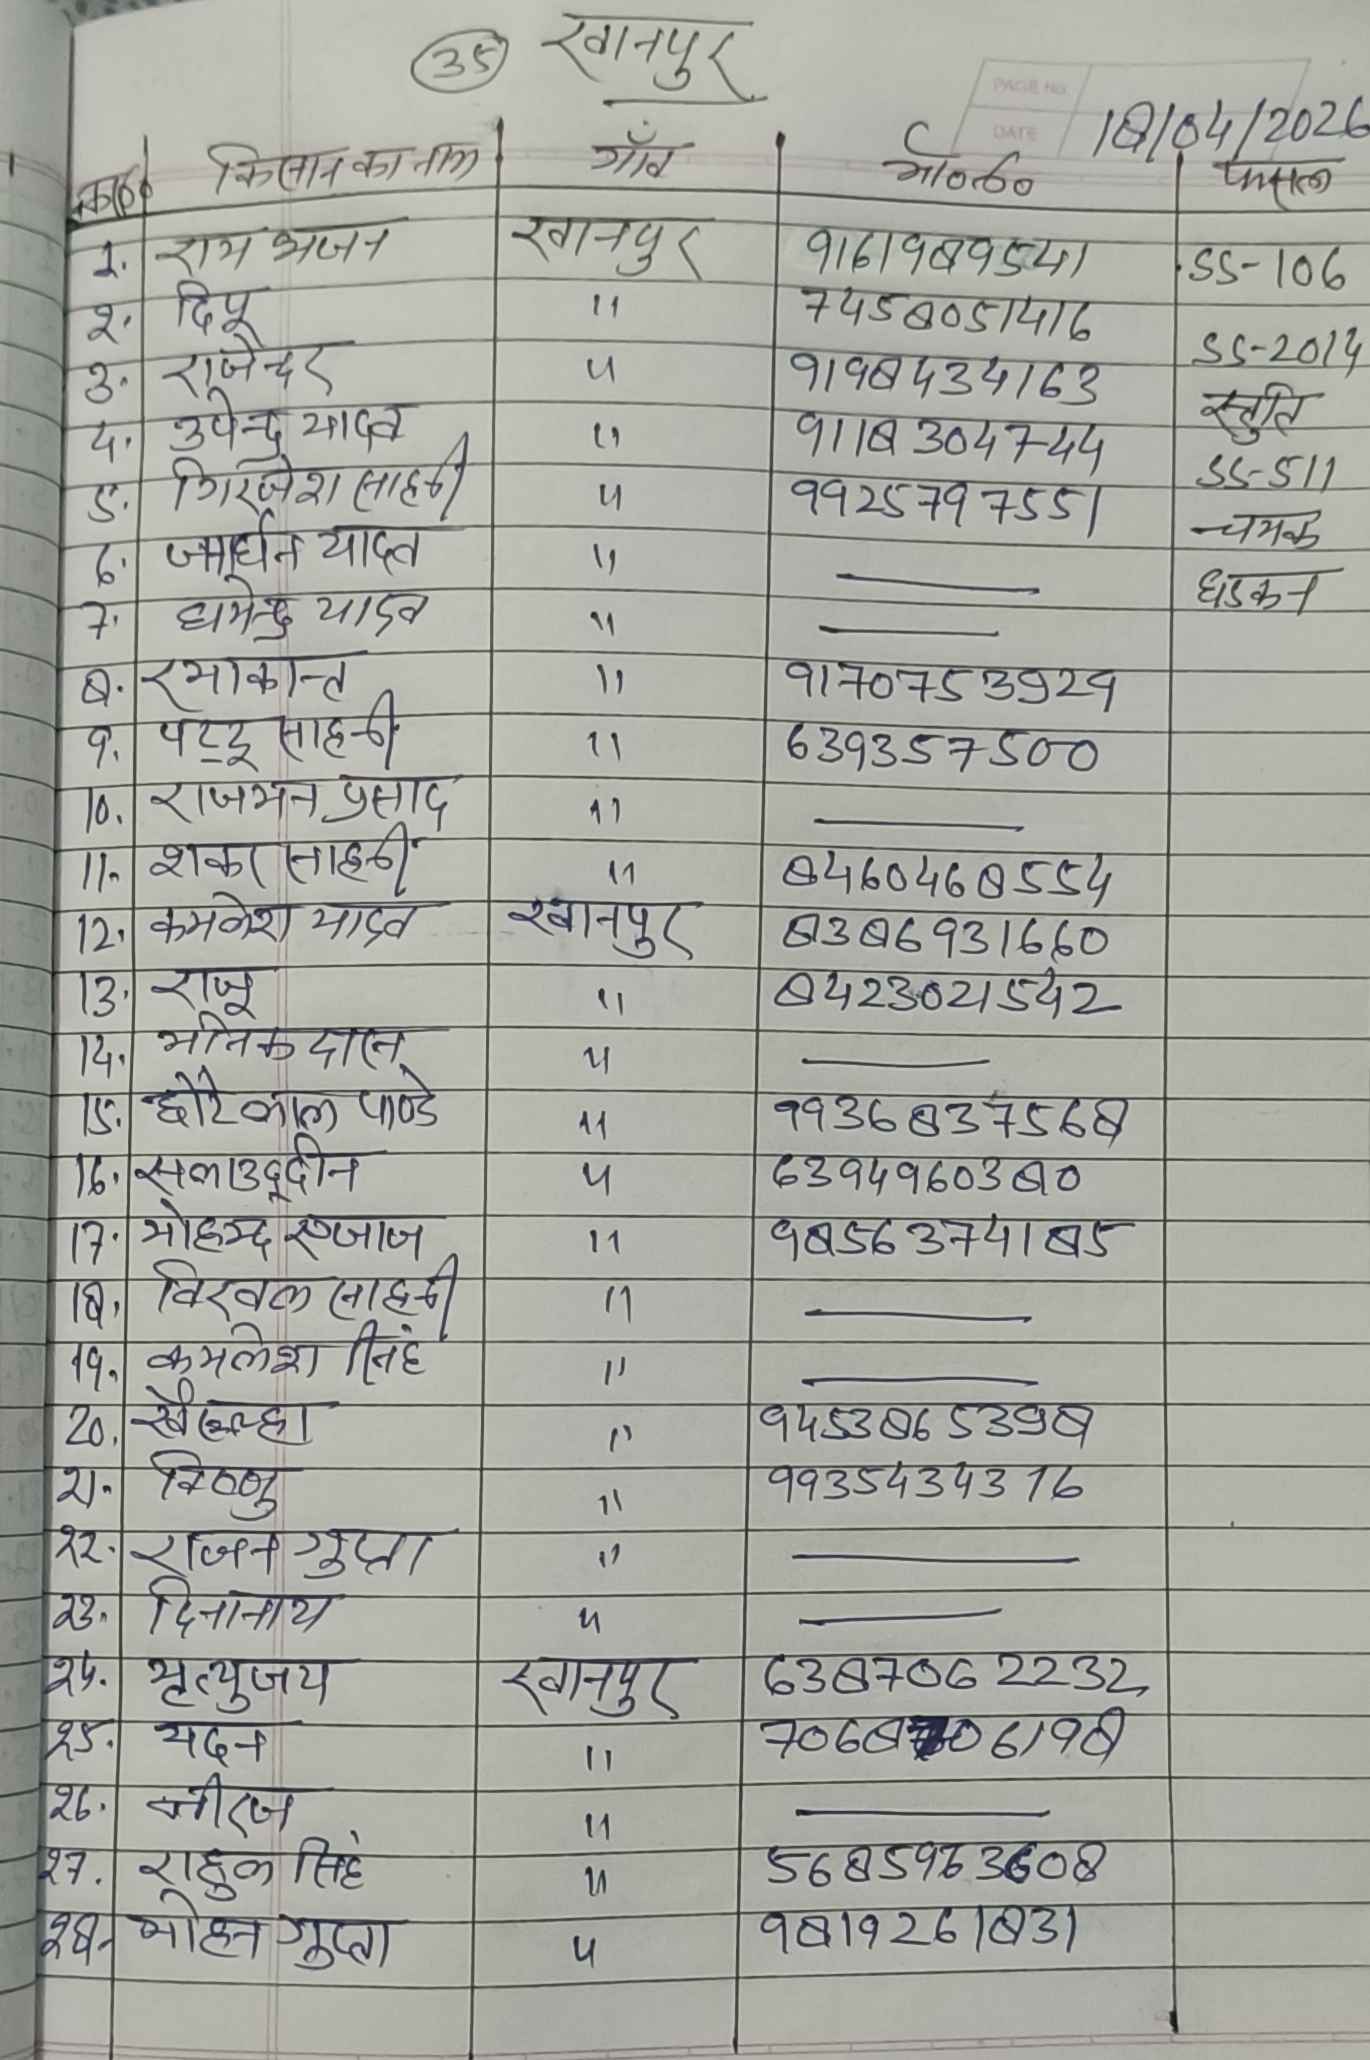 35 खानपुर
PAGE NO.
DATE 18/04/2026
क्र०सं० किसान का नाम गाँव मो०नं० फसल
1. राम भजन खानपुर 9161989541 SS-106
2. दिपू " 7458051416 SS-2014
3. राजेन्दर " 9198434163 स्तुति
4. उपेन्द्र यादव " 9118304744 SS-511
5. गिरजेश साहनी " 9925797551 चमक
6. जनार्धन यादव " — धडकन
7. धर्मेन्द्र यादव " —
8. रमाकान्त " 9170753929
9. पट्टू साहनी " 639357500
10. राजमन प्रसाद " —
11. शंकर साहनी " 8460468554
12. कमलेश यादव खानपुर 8386931660
13. राजू " 8423021542
14. "  —
15. छोटेलाल पाण्डे " 9936837568
16. सलाउद्दीन " 6394960380
17. मोहम्द एजाज " 9856374185
18. विरवल साहनी " —
19. कमलेश सिंह " —
20. " 9453865398
21. विष्णु " 9935434316
22. राजन गुप्ता " —
23. दिनानाथ " —
24. मृत्युजय खानपुर 6387062232
25. मदन " 7068706198
26. नीरज " —
27. राहुल सिंह " 5685963608
28. मोहन गुप्ता " 9819261831